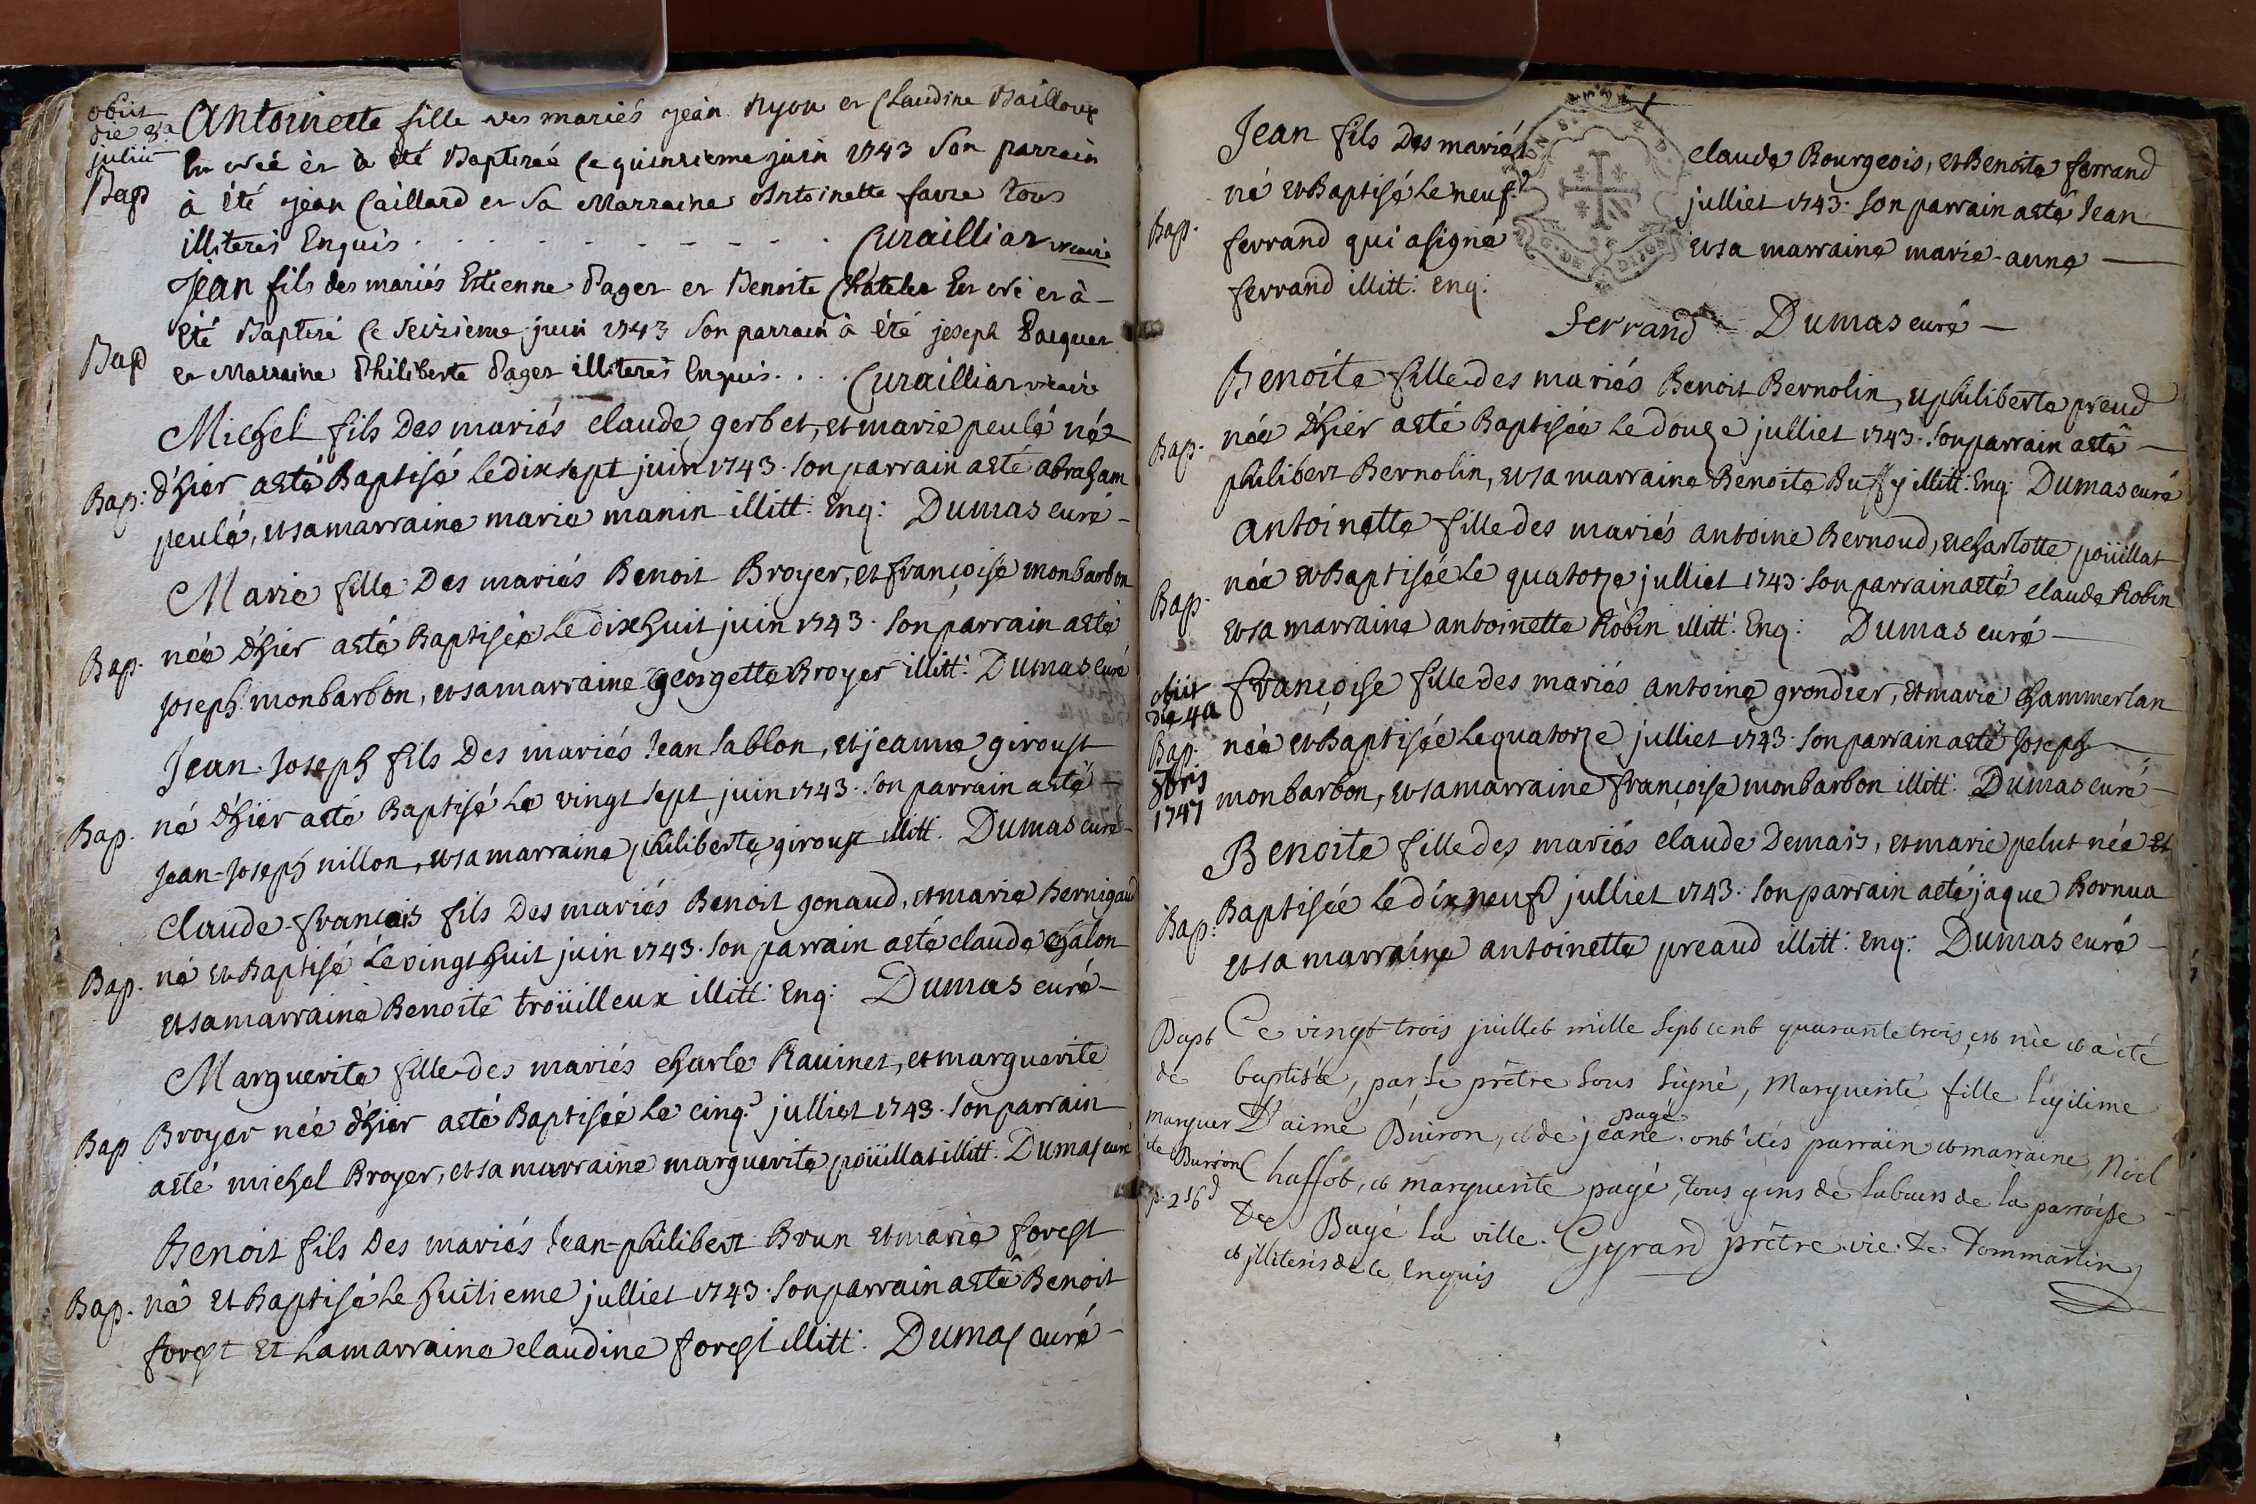 obiit
die 8a
julii
Bap
Antoinette fille des mariés jean Nyon et Claudine Bailloux
Est née et à été Baptizée Ce quinzieme juin 1743 Son parrain
à été jean Caillard et Sa Marraine Antoinette favre Tous
illiteres Enquis . . . . . . . . . Curailliat vicaire
Bap
Jean fils des mariés Estienne Pager et Benoite Chatelet Est né et à
été Baptizé Ce Seizieme juin 1743 Son parrain à été joseph Pacquet
et Marraine Philiberte Pager illiteres Enquis . . . . Curailliat vicaire
Michel fils Des mariés claude gerbet, et marie peulé né
Bap: d'hier aeté Baptisé Le dix sept juin 1743. son parrain aeté abraham
peulé, et sa marraine marie manin illitt: Enq: Dumas curé
Marie fille Des mariés Benoit Broyer, et françoise monbarbon
Bap. née d'hier aeté Baptisée Le dix huit juin 1743. son parrain aeté
joseph monbarbon, et sa marraine georgette Broyer illitt: Dumas curé
Jean-Joseph fils Des mariés Jean sablon, et jeanne giroust
Bap. né d'hier aeté Baptisé Le vingt sept juin 1743. son parrain aeté
Jean-Joseph nillon, et sa marraine philiberte giroust illitt. Dumas curé
Claude-françois fils Des mariés Benoit gonaud, et marie Bernigaud
Bap. né et Baptisé Le vingt huit juin 1743. son parrain aeté claude Chalon
et sa marraine Benoite troüilleux illitt: Enq: Dumas curé
Marguerite fille des mariés charle Ravinet, et marguerite
Bap Broyer née d'hier aeté Baptisée Le cinq.e julliet 1743. son parrain
aeté michel Broyer, et sa marraine marguerite poüillat illitt. Dumas curé
Benoit fils Des mariés Jean-philibert Brun et marie forest
Bap. né et Baptisé Le huitieme julliet 1743. son parrain aeté Benoit
forest Et La marraine claudine forest illitt: Dumas curé
Jean fils Des mariés claude Bourgeois, et Benoite ferrand
Bap. né et Baptisé Le neuf.e julliet 1743. son parrain aeté Jean
ferrand qui a signé et sa marraine marie-anne
ferrand illitt: Enq:
ferrand Dumas curé
Benoite fille des mariés Benoit Bernolin, et philiberte preud
Bap. née d'hier aeté Baptisée Le douze julliet 1743. son parrain aeté
philibert Bernolin, et sa marraine Benoite Buffy illitt: Enq: Dumas curé
antoinette fille des mariés antoine Bernoud, et charlotte poüillat
Bap. née et Baptisée Le quatorze julliet 1743. son parrain aeté claude Robin
et sa marraine antoinette Robin illitt: Enq: Dumas curé
obiit
die 4a
Bap.
8bris
1747
françoise fille des mariés antoine grondier, et marie chammerlan
née et Baptisée Le quatorze julliet 1743. son parrain aeté Joseph
monbarbon, et sa marraine françoise monbarbon illitt: Dumas curé
Benoite fille des mariés claude Demais, et marie pelut née Et
Bap: Baptisée Le dix neuf julliet 1743. son parrain aeté jaque Bornua
et sa marraine antoinette preaud illitt: Enq: Dumas curé
Bapt
de
marguer
ite Buiron
Ce vingt trois juillet mille Sept cent quarante trois, est née et a été
baptisée, par Le prêtre Sous Signé, Marguerite fille légitime
D'aimé Buiron, et de jeane pagé. ont étés parrain et marraine, Noël
Chaffot, et marguerite pagé, tous gens de Labeurs de la parroisse
De Bagé la ville. Gyrard prêtre. vic. de Dommartin
et illiterés de ce Enquis